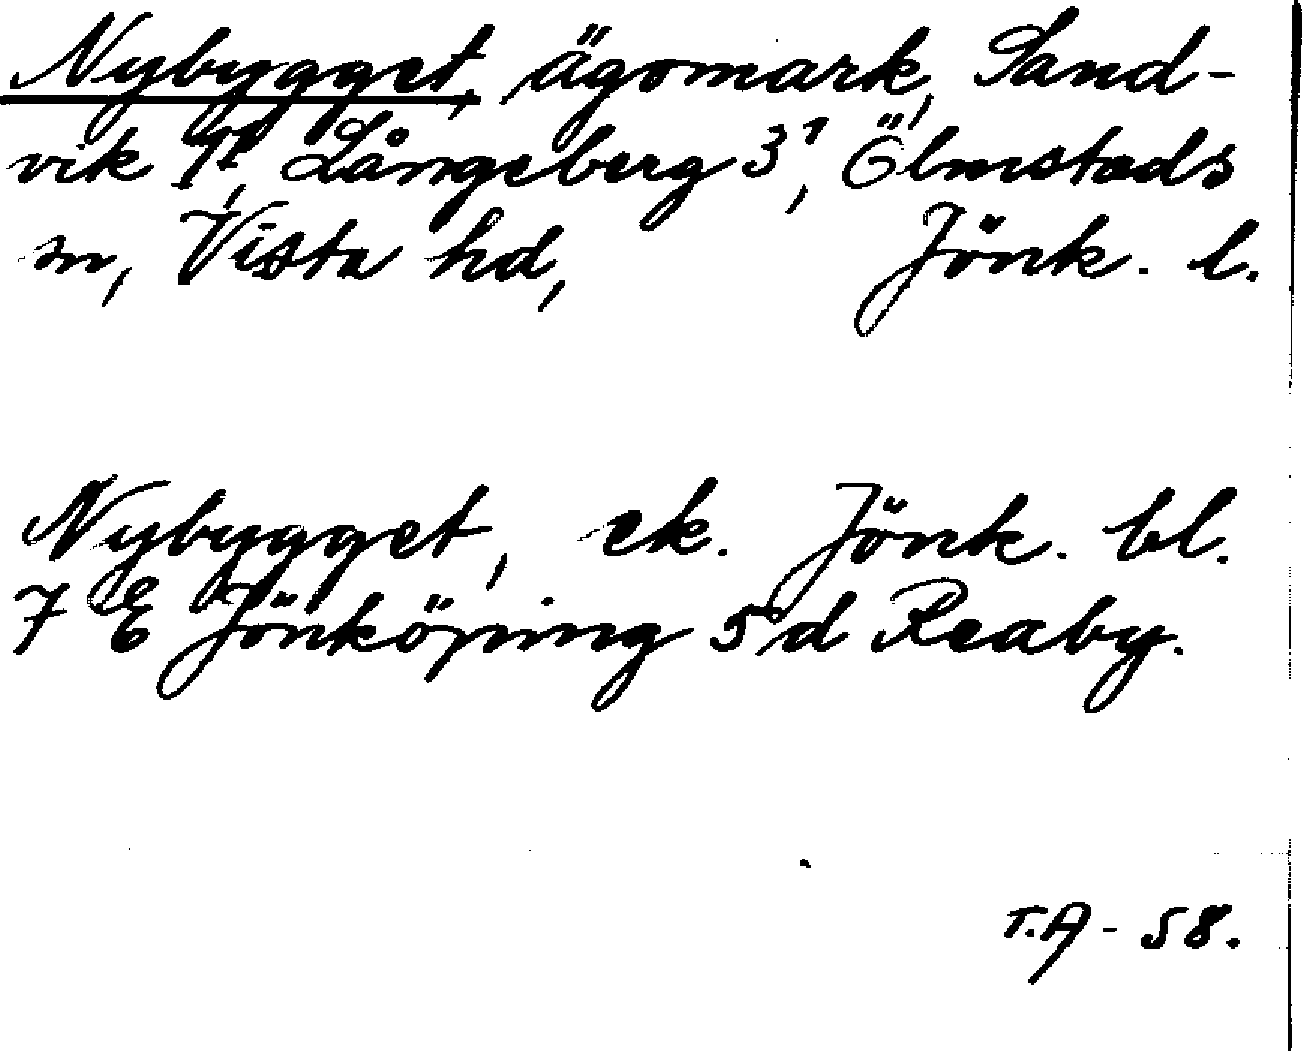 Nybygget, ägomark, Sand-
vik 1¹, Långeberg 3¹, Ölmstads
sn, Vista hd, Jönk. l.
Nybygget, ek. Jönk. bl.
7 E Jönköping 5 d Reaby.
T.A - 58.